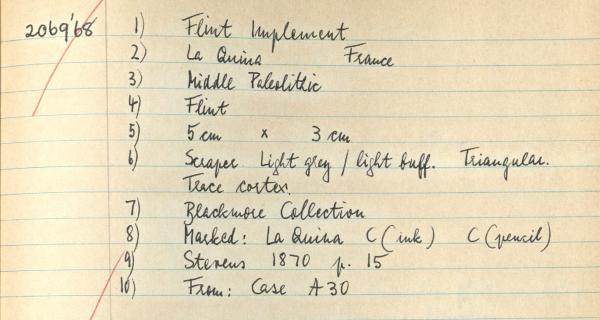 2069'68 1) Flint Implement
2) La Quina France
3) Middle Paleolithic
4) Flint
5) 5 cm x 3 cm
6) Scraper Light grey / light buff. Triangular.
Trace cortex.
7) Blackmore Collection
8) Marked: La Quina C (ink) C (pencil)
9) Stevens 1870 p. 15
10) From: Case A30